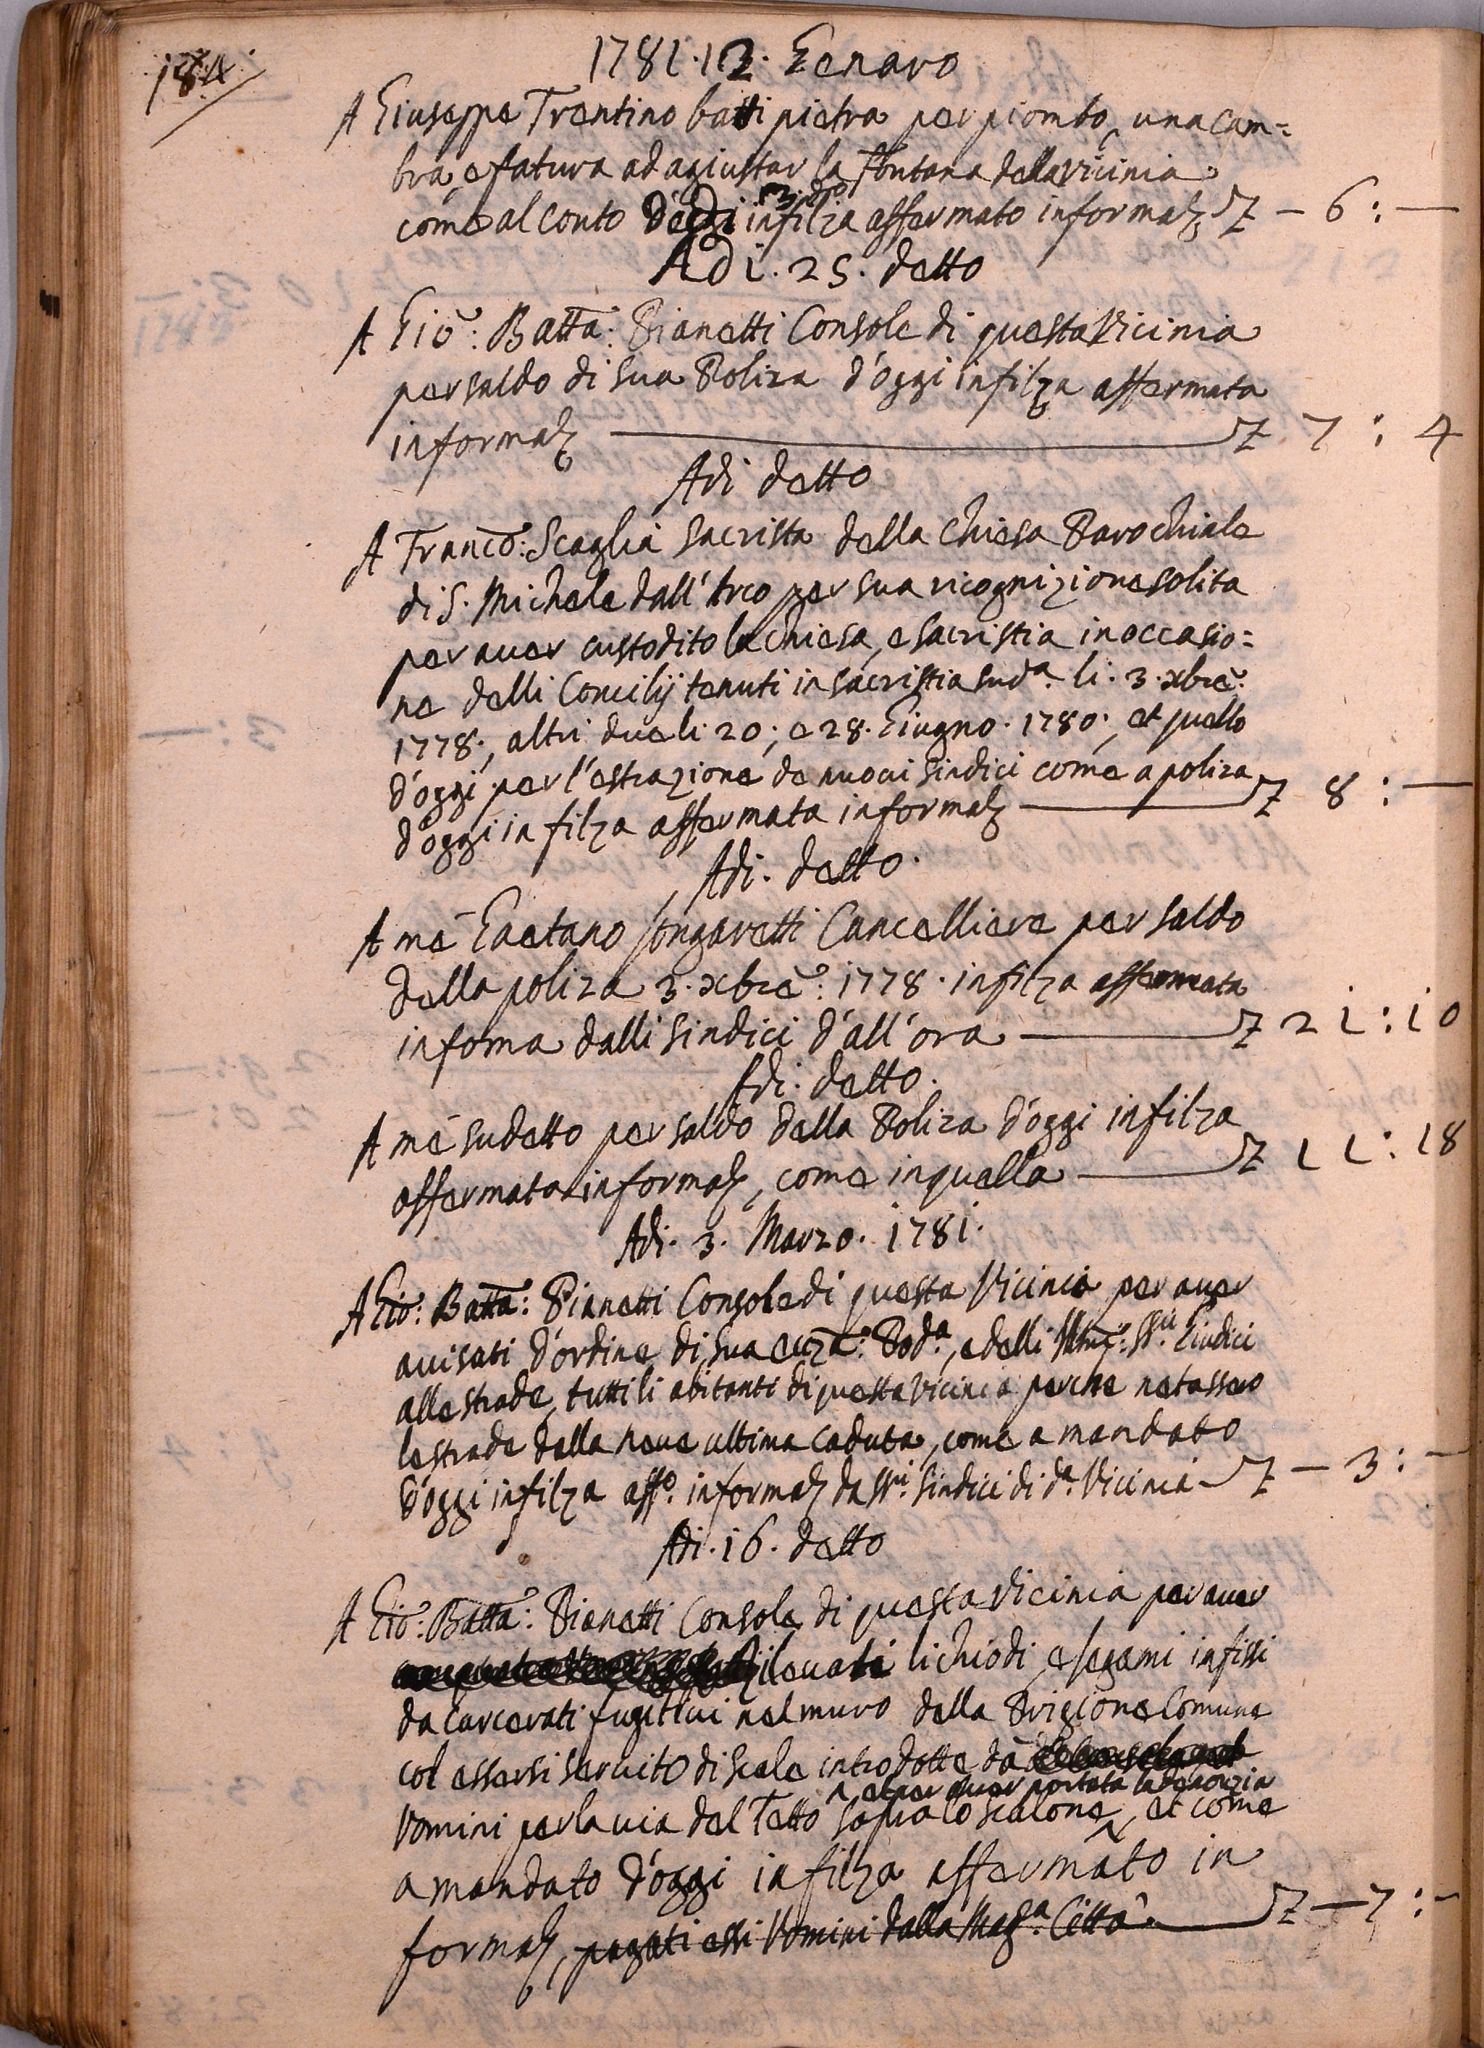 184
1781. 12. Genaro
A Giuseppe Trentino batti pietra per piombo, una cam=
bra, e fatura ad agiustar la Fontana della Vicinia
come al conto d'oggi infilza affermato in formaz L – 6 : —
Adi. 25. detto
A Gio: Batta: Pianetti Console di questa Vicinia
per saldo di sua Poliza d'oggi infilza affermata
in formaz — L 7 : 4
Adi detto
A Franco: Scaglia Sacrista della Chiesa Parochiale
di S. Michele dall'Arco per sua ricognizione solita
per auer custodito la Chiesa, e sacristia in occasio=
ne delli Concilij tenuti in sacristia sud.a li. 3. xbre:
1778., altri due li 20; e 28. Giugno. 1780; et quello
d'oggi per l'estrazione de nuoui sindici come a poliza
d'oggi in filza affermata in formaz — L 8 : —
Adi. detto.
A mè Gaetano Songaretti Cancelliere per saldo
della poliza 3. xbre: 1778. in filza affermata
in foma dalli sindici d'all'ora — L 21 : 10
Adi. detto.
A mè sudetto per saldo della Poliza d'oggi in filza
affermata in formaz, come in quella — L 11 : 18
Adi. 3. Marzo. 1781.
A Gio: Batta: Pianetti Console di questa Vicinia per auer
auisati d'ordine di sua ecza: Pod.a, e delli SS.ri Giudici
alle strade, tutti li abitanti di questa Vicinia perche netassero
le strade dalla neue ultima caduta, come a mandato
d'oggi in filza aff.o in formaz da SS.ri Sindici di d.a Vicinia L – 3 : —
Adi. 16. detto
A Gio: Batta: Pianetti Console di questa Vicinia per auer
leuati li chiodi, e legami infissi
da carcerati fugitiui nel muro della Prigione Comune
col essersi seruito di scale introdotte da
e per auer portata la denonzia
Vomini per la uia del Tetto sopra lo scalone, et come
a mandato d'oggi in filza affermato in
formaz, pagati essi Vomini dalla Mag.a Città. — L – 7 : –